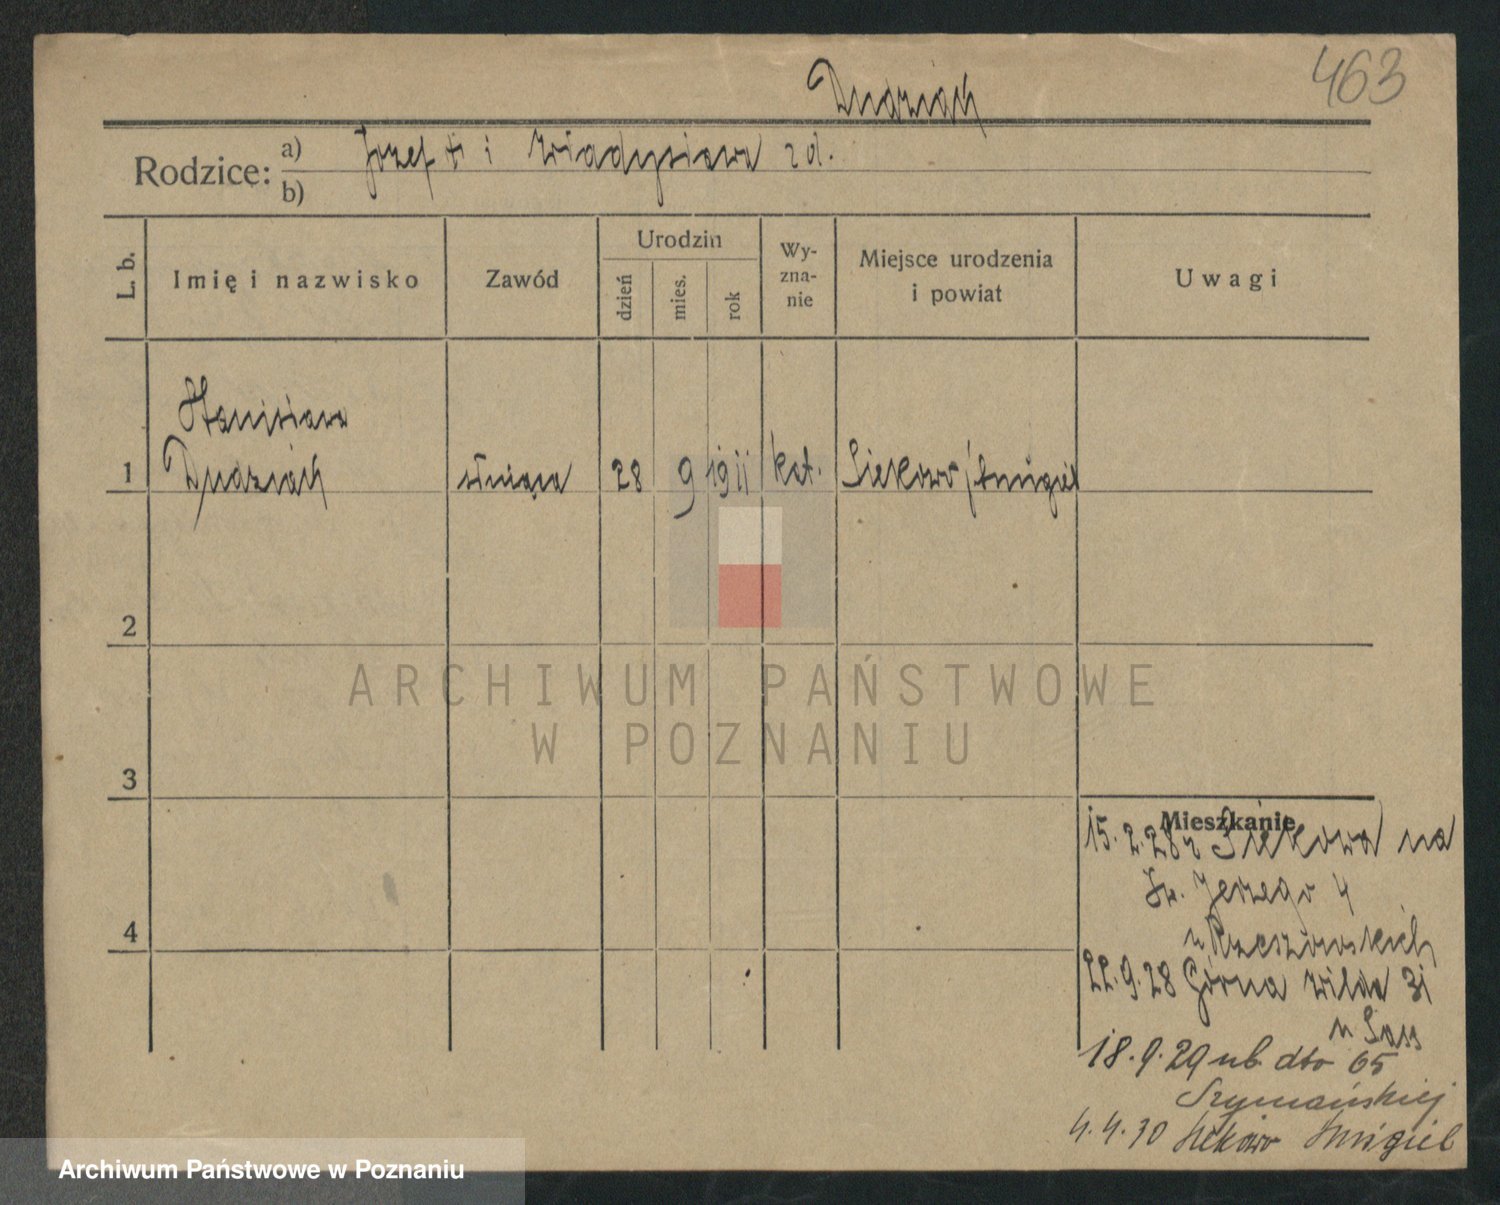 463
Dudziak
Rodzice: a) Józef † i Władysława z d.
b)
L. b. Imię i nazwisko Zawód Urodzin dzień mies. rok Wy-zna-nie Miejsce urodzenia i powiat Uwagi
Stanisława
1 Dudziak służąca 28 9 1911 kat. Siekowo/Śmigiel
2
3
4
Mieszkanie
15.2.28 z Siekowa na
Św. Jerzego 4
u Rzeszowskich
22.9.28 Górna Wilda 31
u Sass
18.9.29 ub. dto 65
Szymańskiej
4.4.30 Siekowo Śmigiel
ARCHIWUM PAŃSTWOWE
W POZNANIU
Archiwum Państwowe w Poznaniu